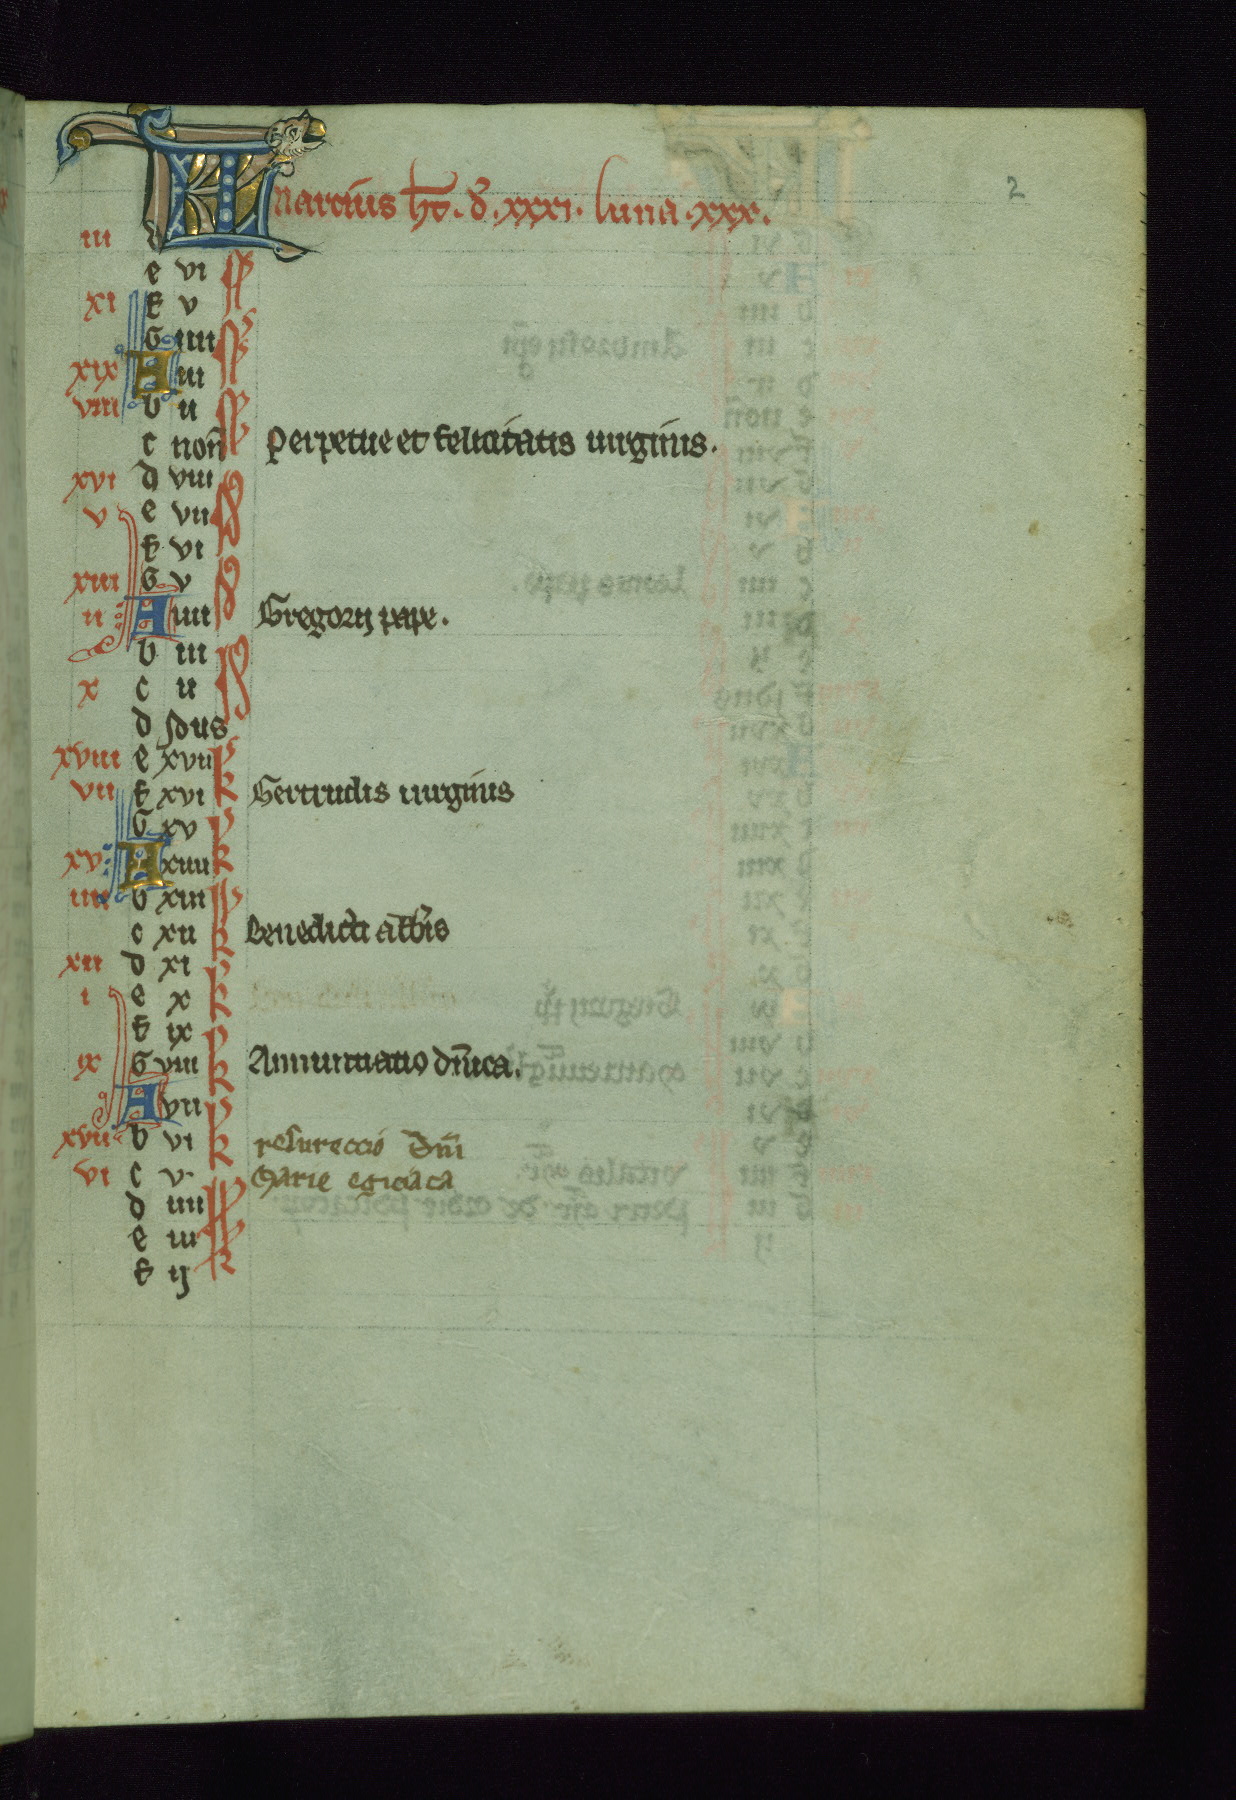 2
Marcius h̄t. d̄. xxxi. luna. xxx.
iii d
e vi
xi f v
G iiii
xix A iii
viii b ii
c non̄ Perpetue et felicitatis uirginis.
xvi d viii
v e vii
f vi
xiii G v
ii A iiii Gregorij pape.
b iii
x c ii
d Idus
xviii e xvii
vii f xvi Gertrudis uirginis
G xv
xv A xiiii
iiii b xiii
c xii Benedicti abb̄is
xii d xi
i e x
f ix
ix G viii Annuntiatio dn̄ica.
A vii
xvii b vi resureccio dn̄i
vi c v. Marie egiciaca
d iiii
e iii
f ij